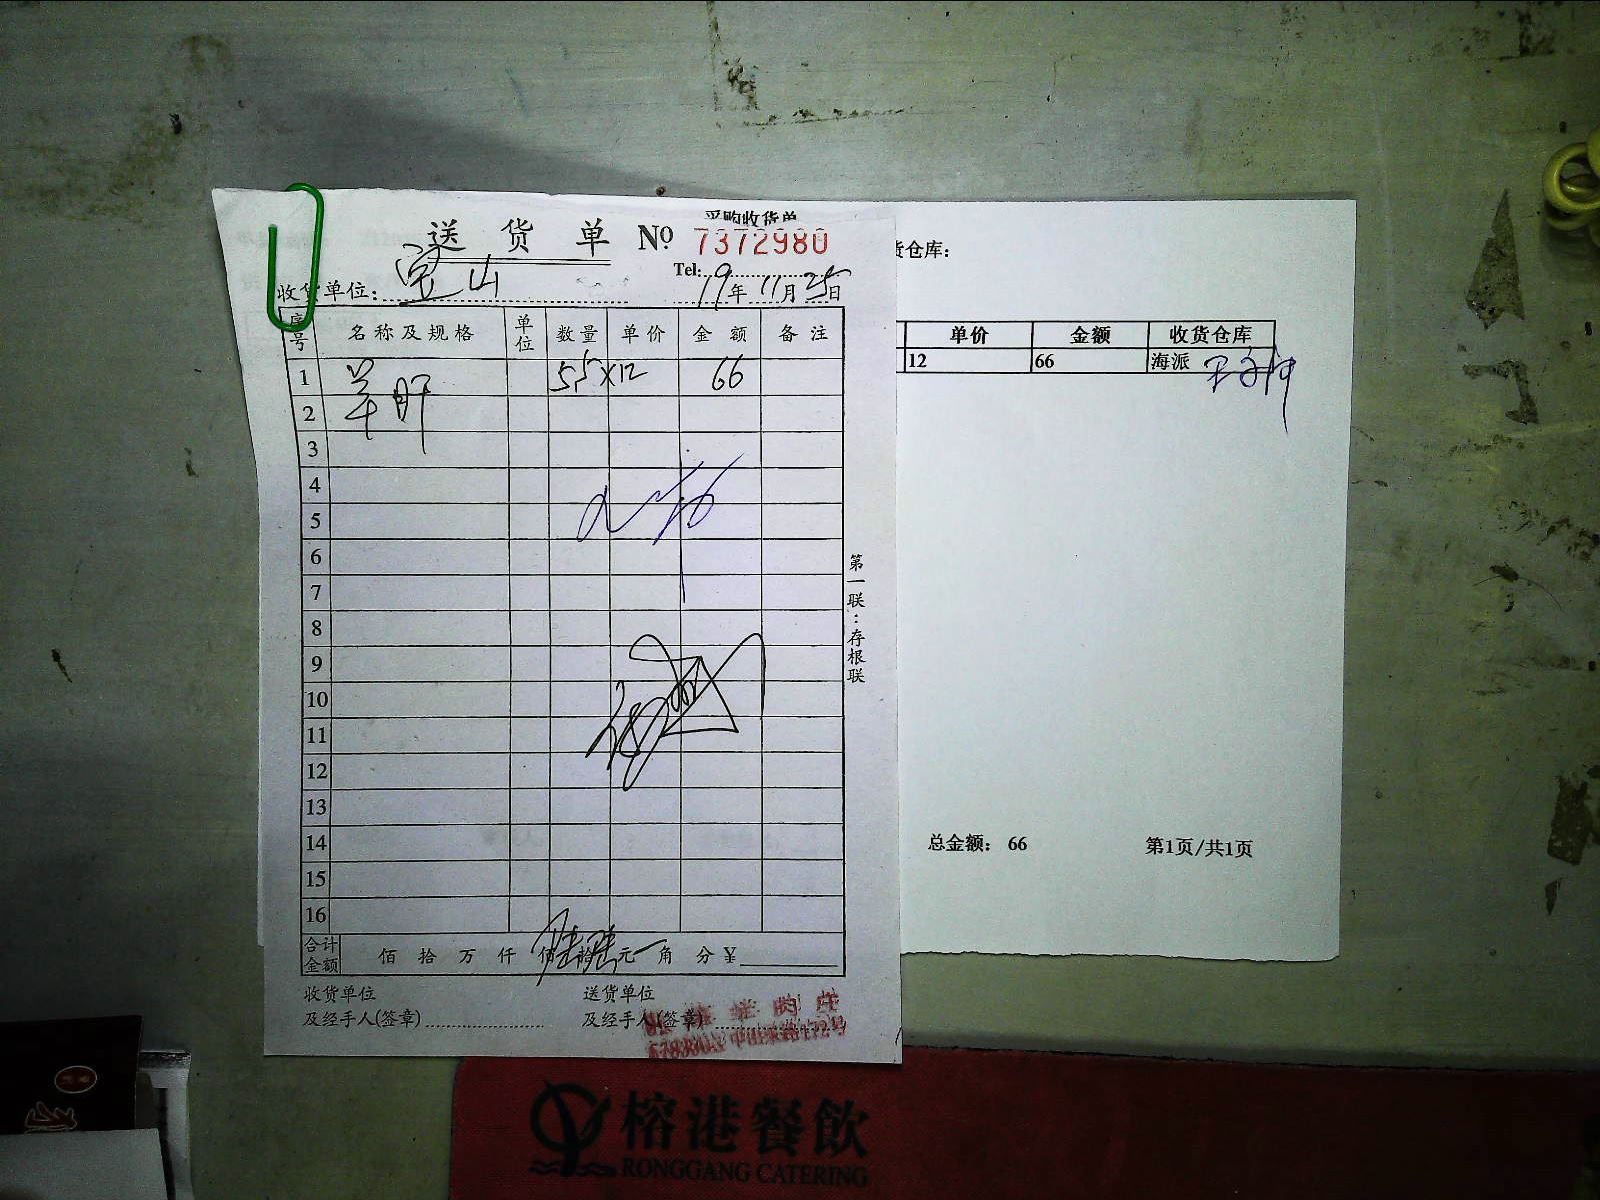 采购收货单
送货单 № 7372980
Tel:
收货单位: 宝山 19年11月25日
货仓库:
序号 名称及规格 单位 数量 单价 金额 备注
1 羊肝 55×12 66
2
3
4
5
6
7
8
9
10
11
12
13
14
15
16
合计金额 佰拾万仟佰拾元角分¥
陆陆
第一联:存根联
收货单位 送货单位
及经手人(签章) 及经手人(签章)
单价 金额 收货仓库
12 66 海派
总金额: 66 第1页/共1页
榕港餐飲
RONGGANG CATERING